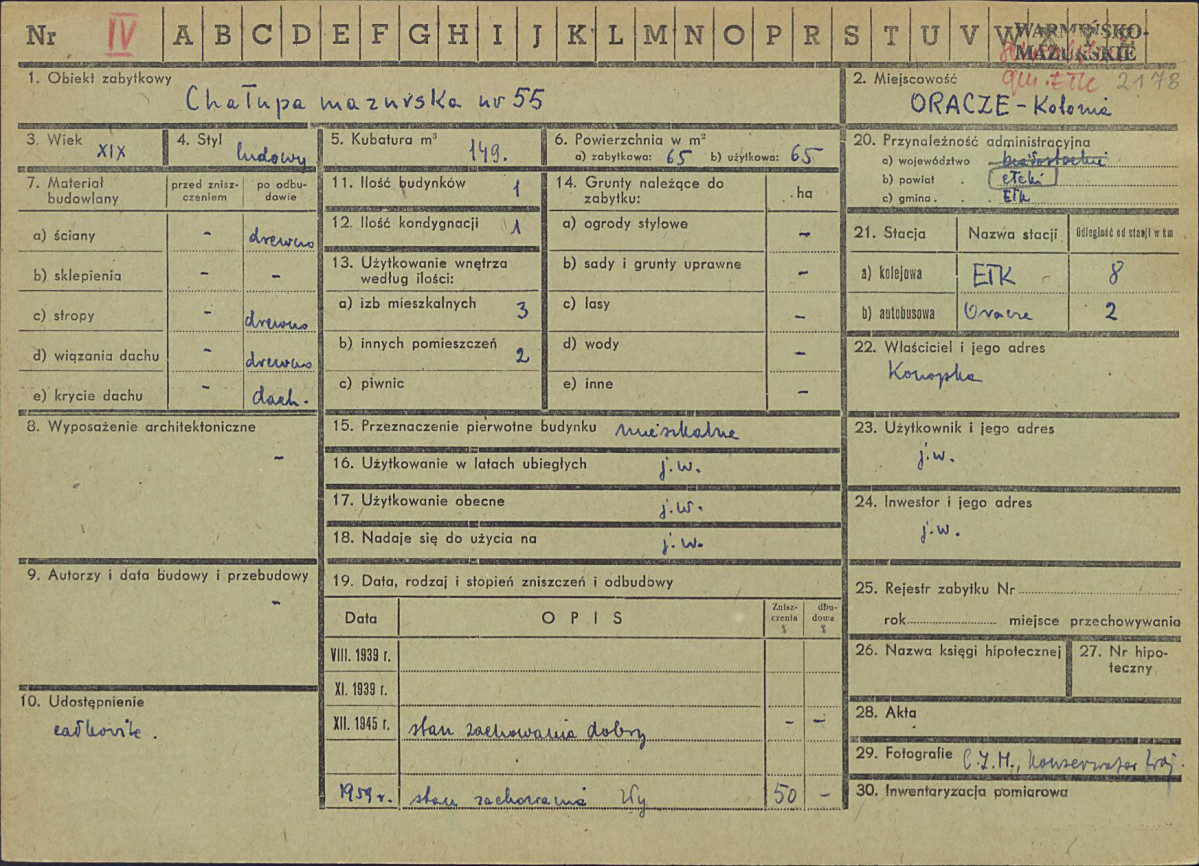 Nr IV A B C D E F G H I J K L M N O P R S T U V W
WARMIŃSKO-
MAZURSKIE
gm. Ełk 2178
1. Obiekt zabytkowy
Chałupa mazurska nr 55
2. Miejscowość
ORACZE - Kolonia
3. Wiek
XIX
4. Styl
ludowy
5. Kubatura m³
149.
6. Powierzchnia w m²
a) zabytkowa: 65 b) użytkowa: 65
7. Materiał budowlany
przed znisz-
czeniem
po odbu-
dowie
a) ściany - drewno
b) sklepienia - -
c) stropy - drewno
d) wiązania dachu - drewno
e) krycie dachu - dach.
8. Wyposażenie architektoniczne
-
9. Autorzy i data budowy i przebudowy
-
10. Udostępnienie
całkowite.
11. Ilość budynków 1
12. Ilość kondygnacji 1
13. Użytkowanie wnętrza
według ilości:
a) izb mieszkalnych 3
b) innych pomieszczeń 2
c) piwnic
14. Grunty należące do
zabytku:
ha
a) ogrody stylowe -
b) sady i grunty uprawne -
c) lasy -
d) wody -
e) inne -
15. Przeznaczenie pierwotne budynku mieszkalne
16. Użytkowanie w latach ubiegłych j.w.
17. Użytkowanie obecne j.w.
18. Nadaje się do użycia na j.w.
19. Data, rodzaj i stopień zniszczeń i odbudowy
Data OPIS
Znisz-
czenia
%
dbu-
dowa
%
VIII. 1939 r.
XI. 1939 r.
XII. 1945 r. stan zachowania dobry - -
1959 r. stan zachowania zły 50 -
20. Przynależność administracyjna
a) województwo białostockie
b) powiat ełcki
c) gmina Ełk
21. Stacja Nazwa stacji Odległość od stacji w km
a) kolejowa Ełk 8
b) autobusowa Oracze 2
22. Właściciel i jego adres
Konopka
23. Użytkownik i jego adres
j.w.
24. Inwestor i jego adres
j.w.
25. Rejestr zabytku Nr
rok miejsce przechowywania
26. Nazwa księgi hipotecznej
27. Nr hipo-
teczny
28. Akta
29. Fotografie Konserwator
30. Inwentaryzacja pomiarowa